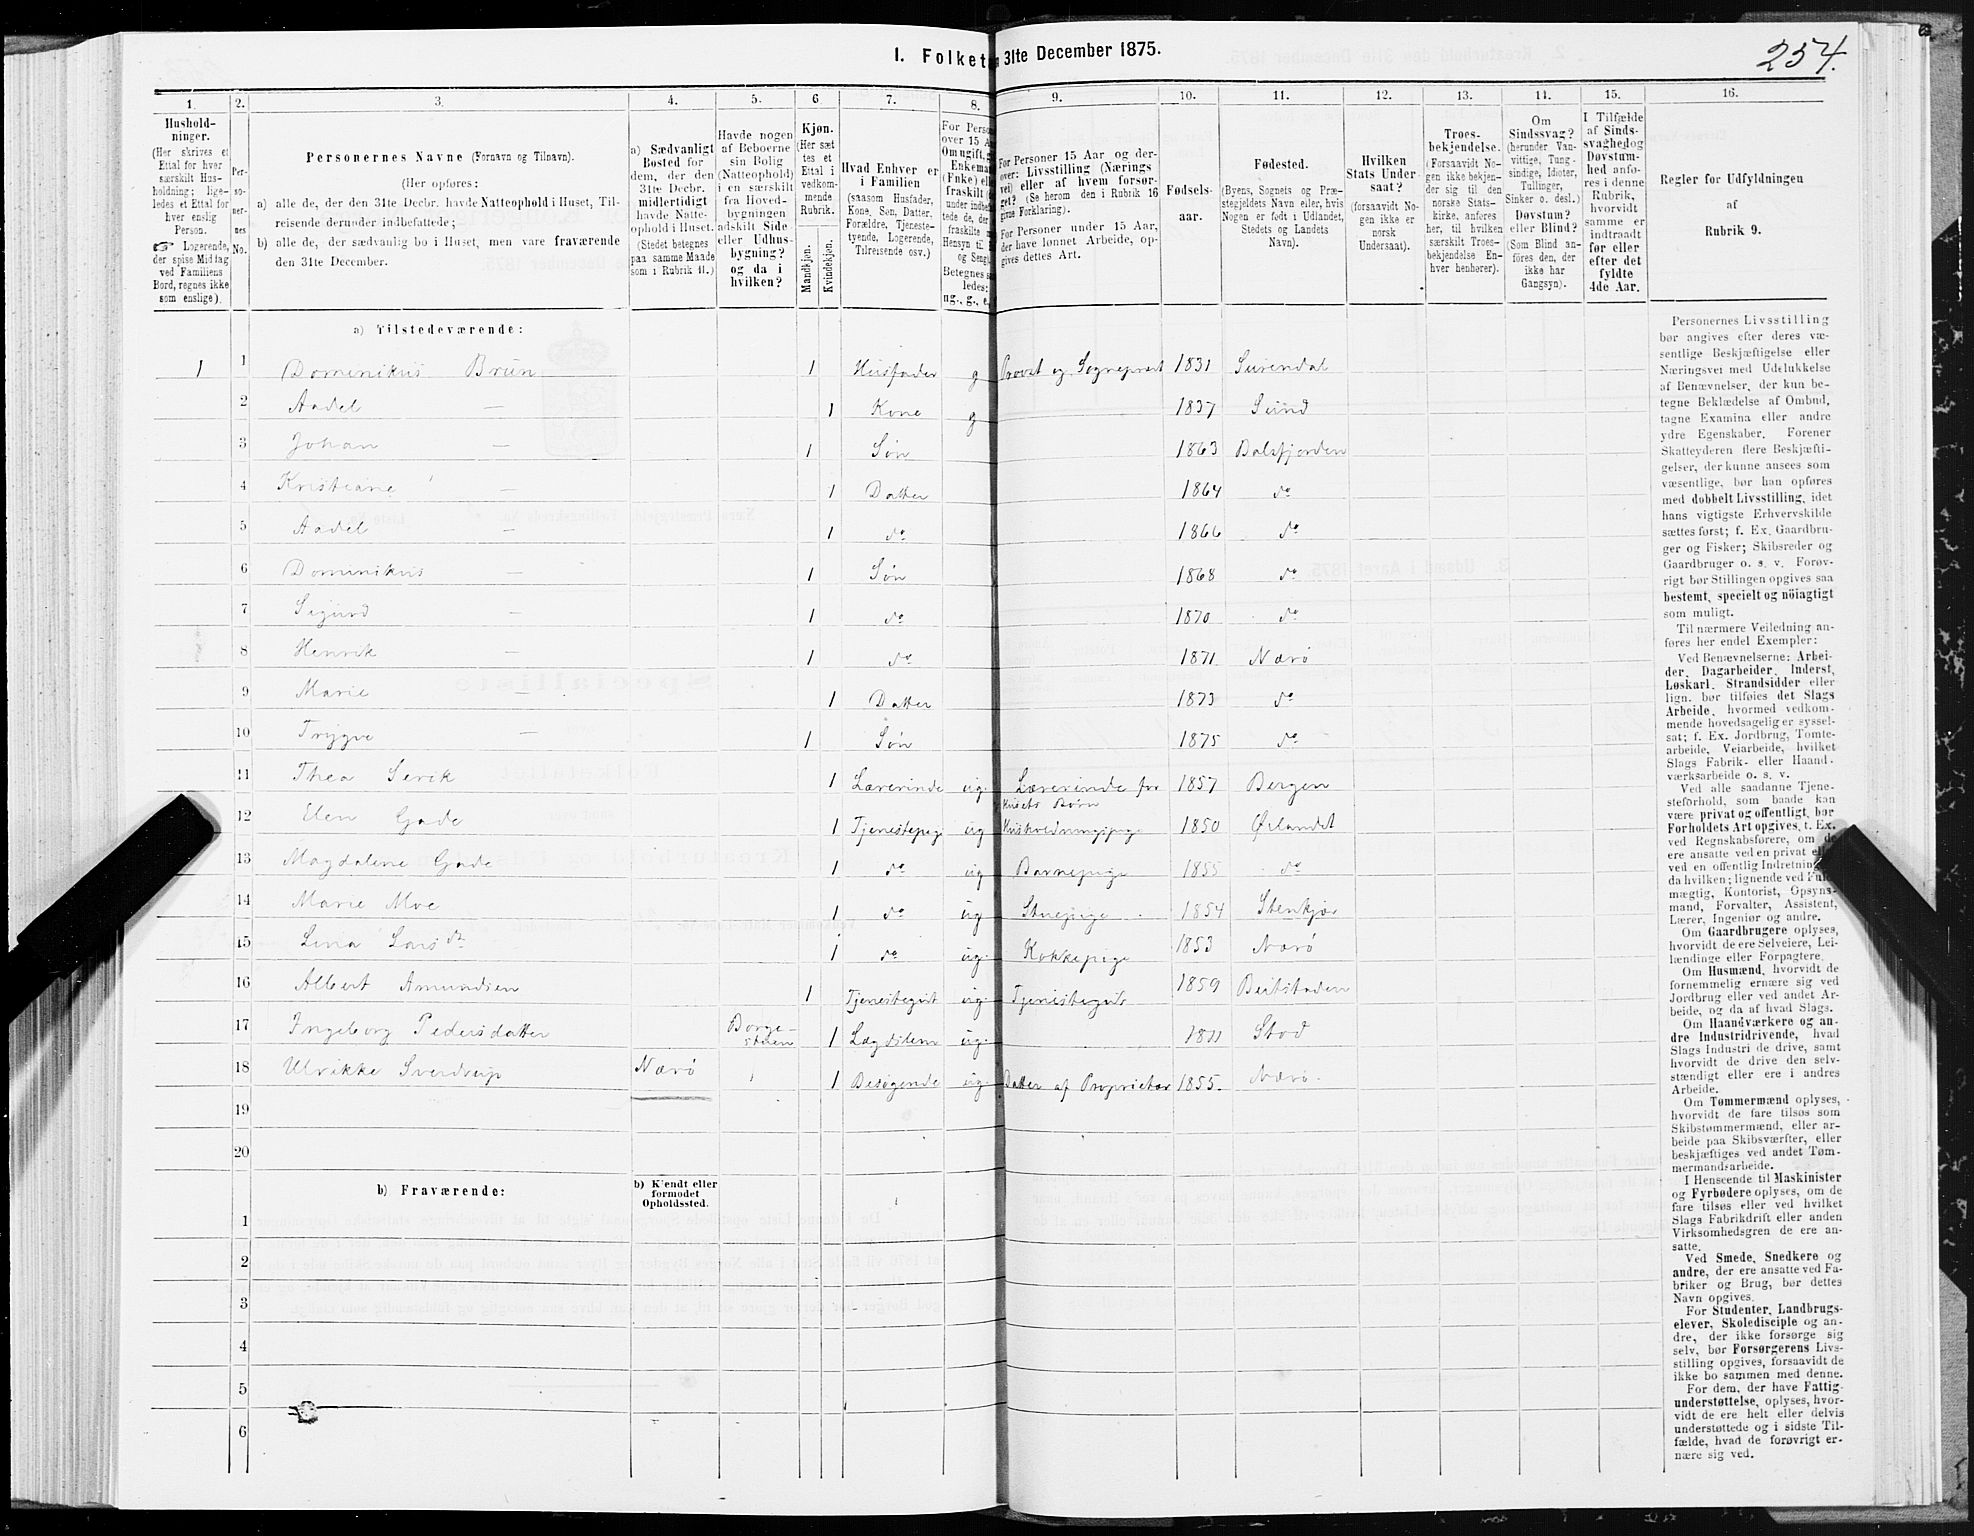 254.
I. Folketæ 31te December 1875.
1. 2. 3. 4. 5. 6 7. 8. 9. 10. 11. 12. 13. 14. 15. 16.
Hushold-
ninger.
(Her skrives et
Ettal for hver
særskilt Hus-
holdning; lige-
ledes et Ettal for
hver enslig
Person.
☞ Logerende,
der spise Middag
ved Familiens
Bord, regnes ikke
som enslige).
Per-
so-
ner-
nes
No.
Personernes Navne (Fornavn og Tilnavn).
(Her opføres:
a) alle de, der den 31te Decbr. havde Natteophold i Huset, Til-
reisende derunder indbefattede;
b) alle de, der sædvanlig bo i Huset, men vare fraværende
den 31te December.
a) Sædvanligt
Bosted for
dem, der den
31te Decbr.
midlertidigt
havde Natte-
ophold i Huset.
(Stedet betegnes
paa samme Maade
som i Rubrik 11.)
Havde nogen
af Beboerne
sin Bolig
(Natteophold)
i en særskilt
fra Hoved-
bygningen
adskilt Side-
eller Udhus-
bygning?
og da i
hvilken?
Kjøn.
(Her sæt
tes et
Ettal i
vedkom-
mende
Rubrik.
Mandkjøn.
Kvindekjøn.
Hvad Enhver er
i Familien
(saasom Husfader,
Kone, Søn, Datter,
Forældre, Tjeneste-
tyende, Logerende,
Tilreisende osv.)
For Perso
over 15 A
Om ugift,
Enkema
(Enke) el
fraskilt
under indb
tede de,
fraskilte
Hensyn til
og Seng
Betegnes s
ledes:
ug., g., e.
For Personer 15 Aar og der-
over: Livsstilling (Nærings
vei) eller af hvem forsør-
get? (Se herom den i Rubrik 16
givne Forklaring).
For Personer under 15 Aar,
der have lønnet Arbeide, op-
gives dettes Art.
Fødsels-
aar.
Fødested.
(Byens, Sognets og Præ-
stegjeldets Navn eller, hvis
Nogen er født i Udlandet,
Stedets og Landets
Navn).
Hvilken
Stats Under
saat?
(forsaavidt No-
gen ikke er
norsk
Undersaat).
Troes-
bekjendelse.
(Forsaavidt No-
gen ikke bekjen-
der sig til den
norske Stats-
kirke, anføres
her, til hvilken
særskilt Troes-
bekjendelse En-
hver henhører).
Om
Sindssvag?
(herunder Van-
vittige, Tung-
sindige, Idioter,
Tullinger,
Sinker o. desl.)
Døvstum?
eller Blind?
(Som Blind an-
føres den, der
ikke har
Gangsyn).
I Tilfælde
af Sinds-
svaghed og
Døvstum-
hed anfø-
res i denne
Rubrik,
hvorvidt
samme er
indtraadt
før eller
efter det
fyldte
4de Aar.
Regler for Udfyldningen
af
Rubrik 9.
a) Tilstedeværende:
1 1 Dominikus Brun 1 Husfader g Provst og Sognepræst 1831 Surendal
2 Aadel — 1 Kone g 1837 Sund
3 Johan — 1 Søn 1863 Balsfjorden
4 Kristiane — 1 Datter 1864 do
5 Aadel — 1 do 1866 do
6 Dominikus — 1 Søn 1868 do
7 Sigurd — 1 do 1870 do
8 Henrik — 1 do 1871 Nærø
9 Marie — 1 Datter 1873 do
10 Trygve — 1 Søn 1875 do
11 Thea 1 Lærerinde ug. Lærerinde for Husets Børn 1857 Bergen
12 Elen Gade 1 Tjenestepige ug Husholdningspige 1850 Ørlandet
13 Magdalene Gade 1 do ug Barnepige 1855 do
14 Marie Moe 1 do ug Stuepige 1854 Stenkjær
15 Lina Larsdt 1 do ug. Kokkepige 1853 Nærø
16 Albert Amundsen 1 Tjenestegut ug. Tjenestegut 1859 Beitstaden
17 Ingeborg Pedersdatter Borgestuen 1 Lægdslem ug. 1811 Stod
18 Ulrikke Sverdrup Nærø 1 Besøgende ug. Datter af Proprietær 1855. Nærø.
19
20
b) Fraværende:
b) Kjendt eller
formodet
Opholdssted.
1
2
3
4
5
6
Personernes Livsstilling
bør angives efter deres væ-
sentlige Beskjæftigelse eller
Næringsvei med Udelukkelse
af Benævnelser, der kun be-
tegne Beklædelse af Ombud,
tagne Examina eller andre
ydre Egenskaber. Forener
Skatteyderen flere Beskjæfti-
gelser, der kunne ansees som
væsentlige, bør han opføres
med dobbelt Livsstilling, idet
hans vigtigste Erhvervskilde
sættes først; f. Ex. Gaardbru-
ger og Fisker; Skibsreder og
Gaardbruger o. s. v. Forøv-
rigt bør Stillingen opgives saa
bestemt, specielt og nöiagtigt
som muligt.
Til nærmere Veiledning an-
føres her endel Exempler:
Ved Benævnelserne: Arbei-
der, Dagarbeider, Inderst,
Løskarl, Strandsidder eller
lign. bør tilføies det Slags
Arbeide, hvormed vedkom-
mende hovedsagelig er syssel-
sat; f. Ex. Jordbrug, Tomte-
arbeide, Veiarbeide, hvilket
Slags Fabrik- eller Haand-
værksarbeide o. s. v.
Ved alle saadanne Tjene-
steforhold, som baade kan
være privat og offentligt, bør
Forholdets Art opgives, t. Ex.
ved Regnskabsførere, om de
ere ansatte ved en privat eller
ved en offentlig Indretning
da hvilken; lignende ved Fuld-
mægtig, Kontorist, Opsyns-
mand, Forvalter, Assistent,
Lærer, Ingeniør og andre.
Om Gaardbrugere oplyses,
hvorvidt de ere Selveiere, Lei-
lændinge eller Forpagtere.
Om Husmænd, hvorvidt de
fornemmelig ernære sig ved
Jordbrug eller ved andet Ar-
beide, og da af hvad Slags.
Om Haandværkere og an-
dre Industridrivende, hvad
Slags Industri de drive, samt
hvorvidt de drive den selv-
stændigt eller ere i andres
Arbeide.
Om Tømmermænd oplyses,
hvorvidt de fare tilsøs som
Skibstømmermænd, eller ar-
beide paa Skibsværfter, eller
beskjæftiges ved andet Tøm-
mermandsarbeide.
I Henseende til Maskinister
og Fyrbødere oplyses, om de
fare tilsøs eller ved hvilket
Slags Fabrikdrift eller anden
Virksomhedsgren de ere an-
satte.
Ved Smede, Snedkere og
andre, der ere ansatte ved Fa-
briker og Brug, bør dettes
Navn opgives.
For Studenter, Landbrugs-
elever, Skoledisciple og an-
dre, der ikke forsørge sig
selv, bør Forsørgerens Livs-
stilling opgives, forsaavidt de
ikke bo sammen med denne.
For dem, der have Fattig-
understøttelse, oplyses, hvor-
vidt de ere helt eller delvis
understøttede og i sidste Til-
fælde, hvad de forøvrigt er-
nære sig ved.